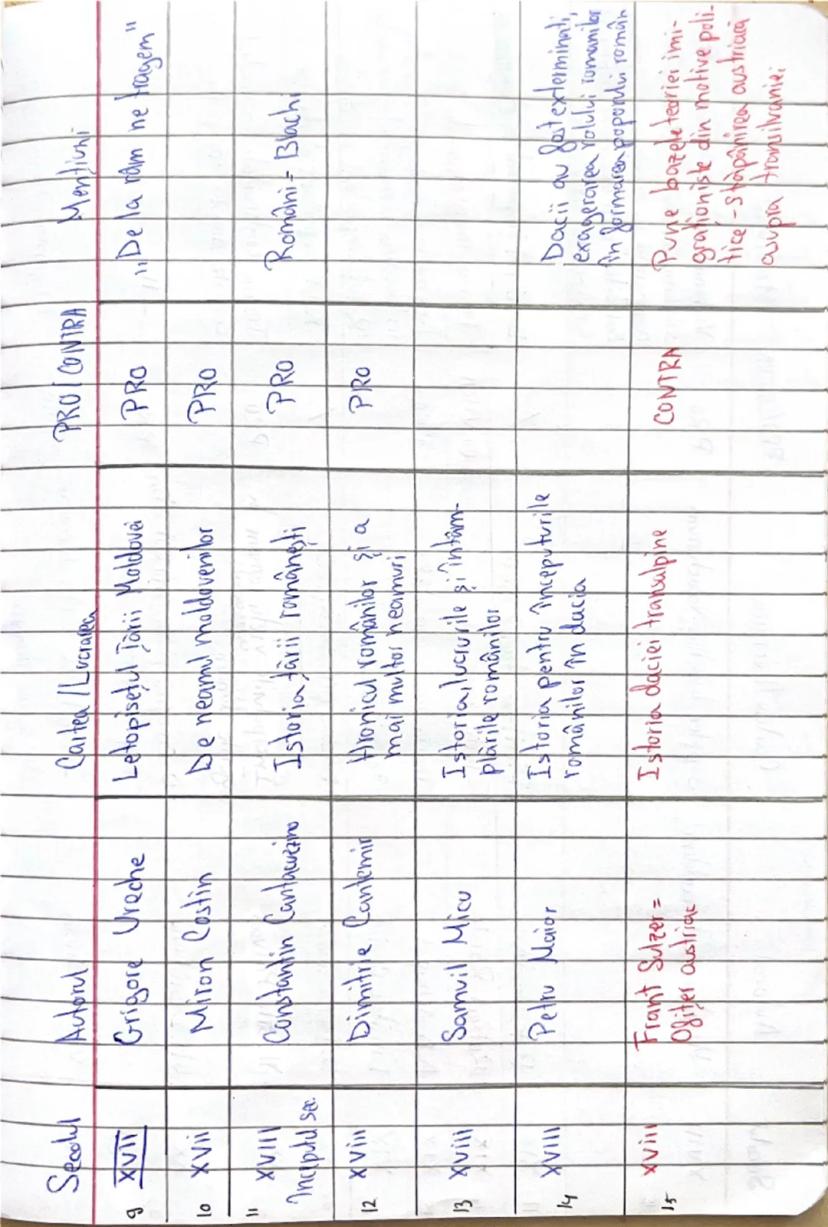 Secolul Autorul Cartea/Lucrarea PRO/CONTRA Mențiuni
9 XVII Grigore Ureche Letopisețul Țării Moldovei PRO „De la râm ne tragem"
10 XVII Miron Costin De neamul moldovenilor PRO
11 XVIII Constantin Cantacuzino Istoria țării românești PRO Români = Blachi
începutul sec.
12 XVIII Dimitrie Cantemir Hronicul românilor și a PRO
mai multor neamuri
13 XVIII Samuil Micu Istoria, lucrurile și întâm-
plările românilor
14 XVIII Petru Maior Istoria pentru începuturile Dacii au fost exterminați,
românilor în dacia exagerarea rolului romanilor
în formarea poporului român
15 XVIII Frant Sulzer = Istoria daciei transalpine CONTRA Pune bazele teoriei imi-
Ofițer austriac graționiste din motive poli-
tice - stăpânirea austriacă
asupra transilvaniei